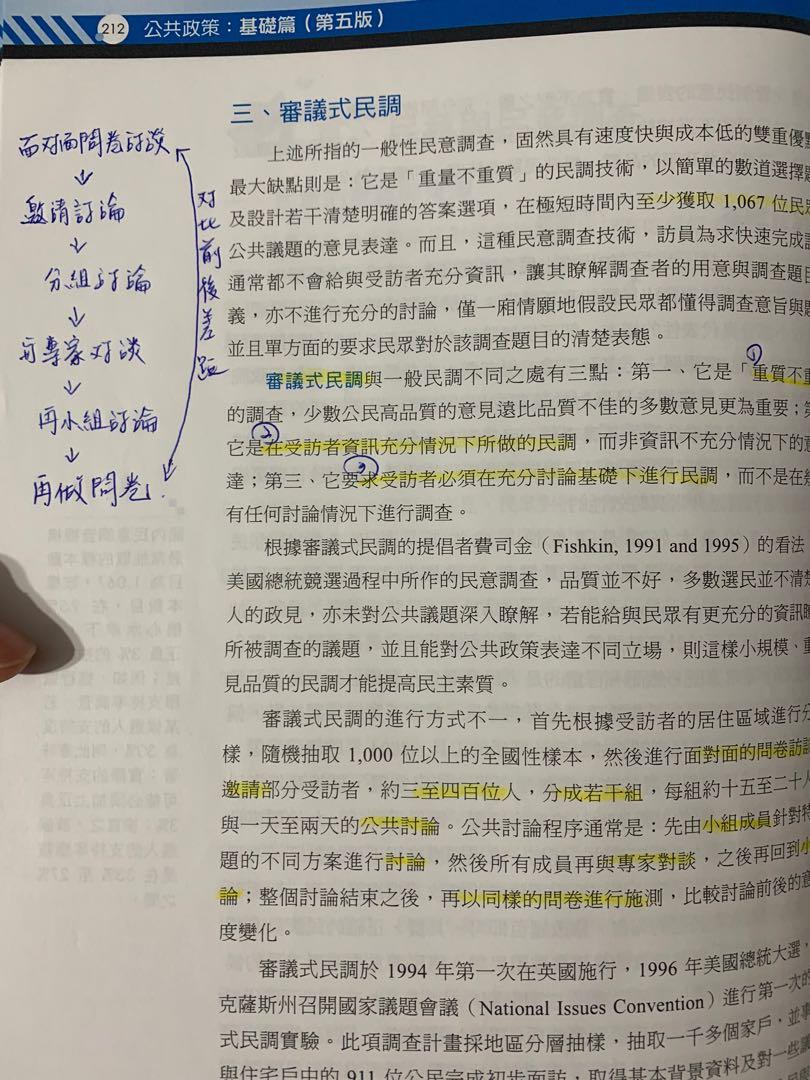 212 公共政策：基礎篇（第五版）
三、審議式民調
上述所指的一般性民意調查，固然具有速度快與成本低的雙重優點
最大缺點則是：它是「重量不重質」的民調技術，以簡單的數道選擇題
及設計若干清楚明確的答案選項，在極短時間內至少獲取 1,067 位民眾
公共議題的意見表達。而且，這種民意調查技術，訪員為求快速完成
通常都不會給與受訪者充分資訊，讓其瞭解調查者的用意與調查題目
義，亦不進行充分的討論，僅一廂情願地假設民眾都懂得調查意旨與
並且單方面的要求民眾對於該調查題目的清楚表態。
審議式民調與一般民調不同之處有三點：第一、它是「重質不重
的調查，少數公民高品質的意見遠比品質不佳的多數意見更為重要；
它是在受訪者資訊充分情況下所做的民調，而非資訊不充分情況下的意
達；第三、它要求受訪者必須在充分討論基礎下進行民調，而不是在
有任何討論情況下進行調查。
根據審議式民調的提倡者費司金（Fishkin, 1991 and 1995）的看法，
美國總統競選過程中所作的民意調查，品質並不好，多數選民並不清楚
人的政見，亦未對公共議題深入瞭解，若能給與民眾有更充分的資訊
所被調查的議題，並且能對公共政策表達不同立場，則這樣小規模、重
見品質的民調才能提高民主素質。
審議式民調的進行方式不一，首先根據受訪者的居住區域進行分
樣，隨機抽取 1,000 位以上的全國性樣本，然後進行面對面的問卷訪
邀請部分受訪者，約三至四百位人，分成若干組，每組約十五至二十人
與一天至兩天的公共討論。公共討論程序通常是：先由小組成員針對特
題的不同方案進行討論，然後所有成員再與專家對談，之後再回到小
論；整個討論結束之後，再以同樣的問卷進行施測，比較討論前後的意
度變化。
審議式民調於 1994 年第一次在英國施行，1996 年美國總統大選，
克薩斯州召開國家議題會議（National Issues Convention）進行第一次的
式民調實驗。此項調查計畫採地區分層抽樣，抽取一千多個家戶，並
與住宅戶中的 911 位公民完成初步面訪，取得基本背景資料及對一些
面对面問卷討談
↓
邀請討論
↓
分組討論
↓
與專家对談
↓
再小組討論
↓
再做問卷.
对比前後差距
①
②
③